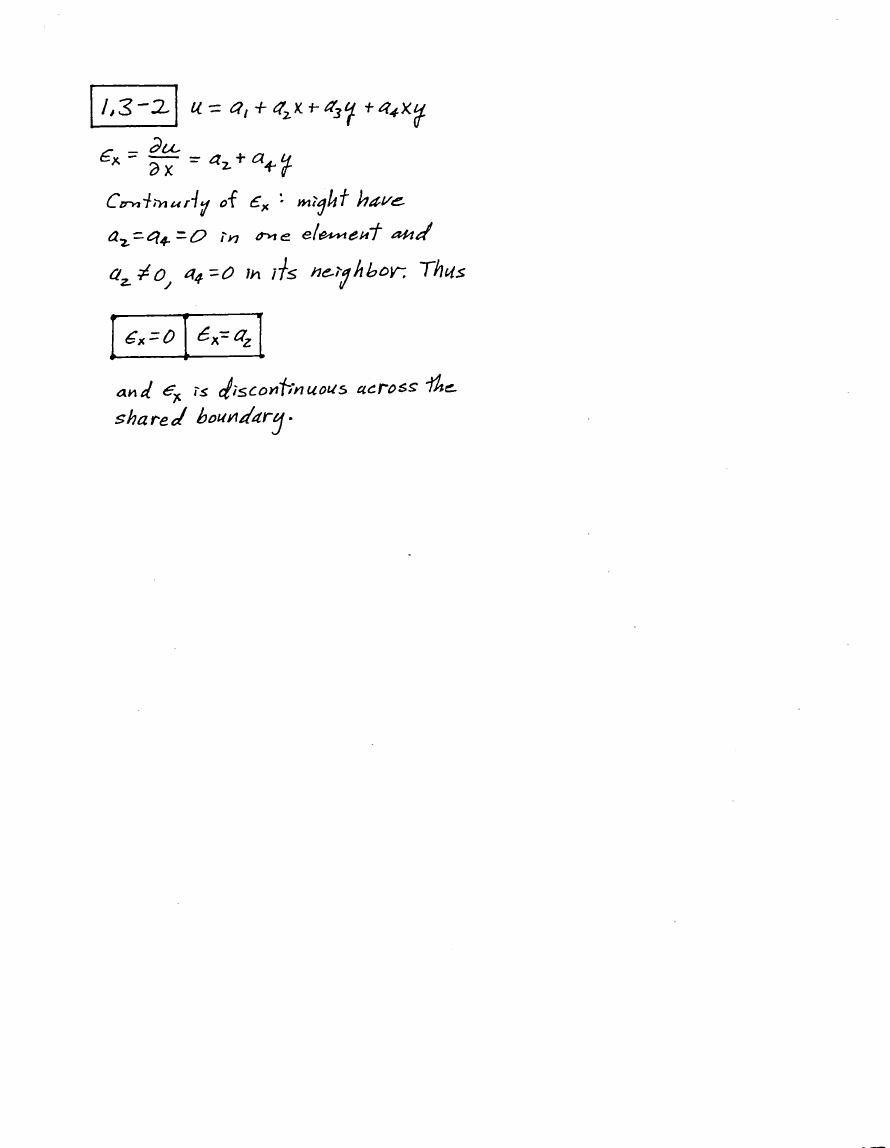 1.3-2 u = a₁ + a₂x + a₃y + a₄xy
εₓ = ∂u/∂x = a₂ + a₄y
Continuity of εₓ : might have
a₂=a₄=0 in one element and
a₂≠0, a₄=0 in its neighbor. Thus
εₓ=0 εₓ=a₂
and εₓ is discontinuous across the
shared boundary.